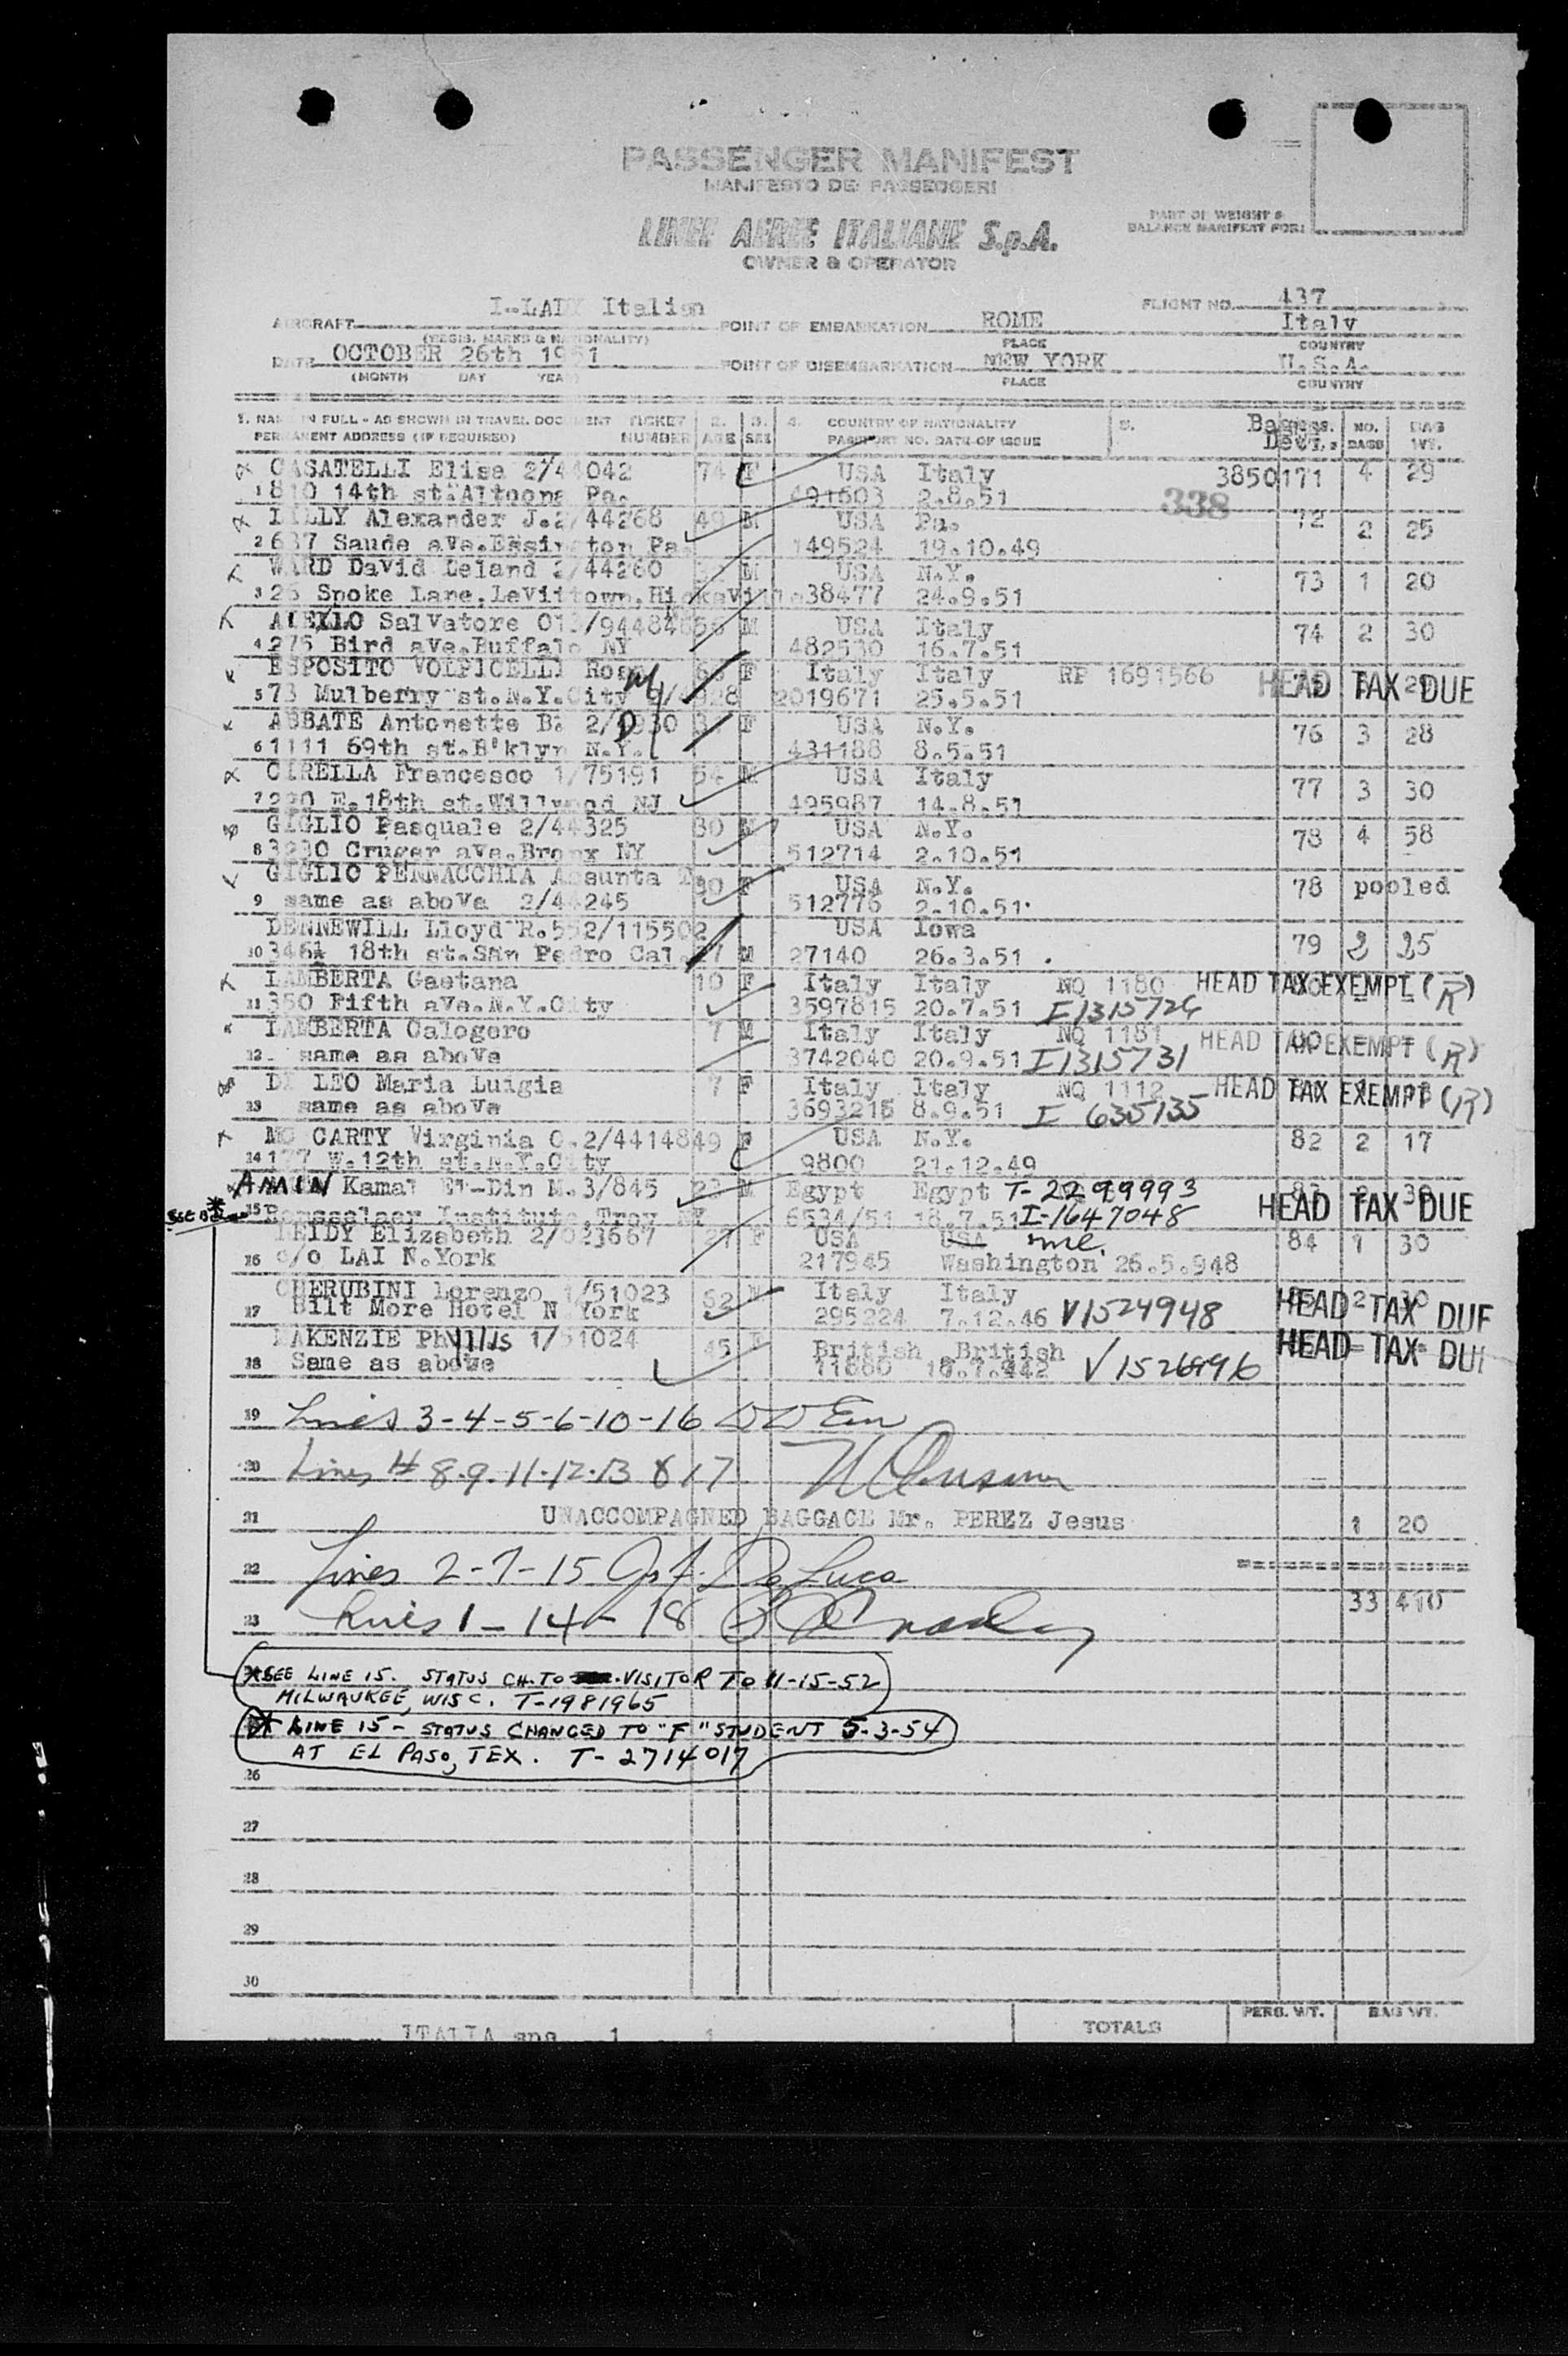 PASSENGER MANIFEST
MANIFESTO DEI PASSEGGERI
LINEE AEREE ITALIANE S.p.A.
OWNER & OPERATOR
PART OF WEIGHT &
BALANCE MANIFEST FOR:
AIRCRAFT I-LAD Italian
(REGIS. MARKS & NATIONALITY)
FLIGHT NO. 437
POINT OF EMBARKATION ROME Italy
PLACE COUNTRY
DATE OCTOBER 26th 1951
(MONTH DAY YEAR)
POINT OF DISEMBARKATION NEW YORK U.S.A.
PLACE COUNTRY
1. NAME IN FULL - AS SHOWN IN TRAVEL DOCUMENT TICKET 2. 3. 4. COUNTRY OF NATIONALITY 5. NO. BAG
PERMANENT ADDRESS (IF REQUIRED) NUMBER AGE SEX PASSPORT NO. DATE OF ISSUE BAGS WT.
CASATELLI Elisa 2/44042 74 F USA Italy 3850171 4 29
1 810 14th st. Altoona Pa. 491603 2.8.51 338
LILLY Alexander J.2/44268 49 M USA Pa. 72 2 25
2 637 Saude ave.Essington Pa. 149524 19.10.49
WARD David Leland 2/44260 M USA N.Y. 73 1 20
3 26 Spoke Lane,Levittown, 38477 24.9.51
AIELLO Salvatore 56 M USA Italy 74 2 30
4 275 Bird ave.Buffalo NY 482530 16.7.51
ESPOSITO VOLPICELLI Rosa F Italy Italy RP 1691566 HEAD TAX DUE
5 73 Mulberry st.N.Y.City 2019671 25.5.51
ABBATE Antonette F USA N.Y. 76 3 28
6 1111 69th st.B'klyn N.Y. 431188 8.5.51
CIRELLA Francesco 1/75191 54 M USA Italy 77 3 30
7 E.18th st. NJ 495987 14.8.51
GIGLIO Pasquale 2/44325 30 M USA N.Y. 78 4 58
8 3230 Cruger ave.Bronx NY 512714 2.10.51
GIGLIO PENNACCHIA Assunta 30 F USA N.Y. 78 pooled
9 same as above 2/44245 512776 2.10.51.
DENNEWILL Lloyd R.552/115502 USA Iowa 79 2 25
10 346½ 18th st.San Pedro Cal. 27 M 27140 26.3.51 .
LAMBERTA Gaetana 10 F Italy Italy NQ 1180 HEAD TAX EXEMPT (R)
11 350 Fifth ave.N.Y.City 3597815 20.7.51 I1315726
LAMBERTA Calogero 7 M Italy Italy NQ 1181 HEAD TAX EXEMPT (R)
12 same as above 3742040 20.9.51 I1315731
DI LEO Maria Luigia 7 F Italy Italy NQ 1112 HEAD TAX EXEMPT (R)
13 same as above 3693215 8.9.51 I 635135
MC CARTY Virginia C.2/44148 49 F USA N.Y. 82 2 17
14 W.12th st.N.Y.City 9800 21.12.49
AMIN Kamal El-Din M.3/845 23 M Egypt Egypt T-2299993 HEAD TAX DUE
15 Institute,Troy NY 6534/51 18.7.51 I-1647048
REIDY Elizabeth 2/023667 27 F USA USA 84 1 30
16 c/o LAI N.York 217945 Washington 26.5.948
CHERUBINI Lorenzo 1/51023 52 M Italy Italy HEAD TAX DUE
17 Bilt More Hotel N York 295224 7.12.46 V1524948
MAKENZIE Phyllis 1/51024 45 F British British HEAD TAX DUE
18 Same as above 11880 V1526996
19 Lines 3-4-5-6-10-16
20 Lines # 8.9.11.12.13 & 17
21 UNACCOMPAGNED BAGGAGE Mr. PEREZ Jesus 1 20
22 Lines 2-7-15 De Luca
23 Lines 1-14-18 33 410
*SEE LINE 15. STATUS CH. TO VISITOR TO 11-15-52
MILWAUKEE, WISC. T-1981965
* LINE 15 - STATUS CHANGED TO "F" STUDENT 5-3-54
AT EL PASO, TEX. T-2714017
26
27
28
29
30
TOTALS PERS. WT. BAG WT.
ITALIA spa